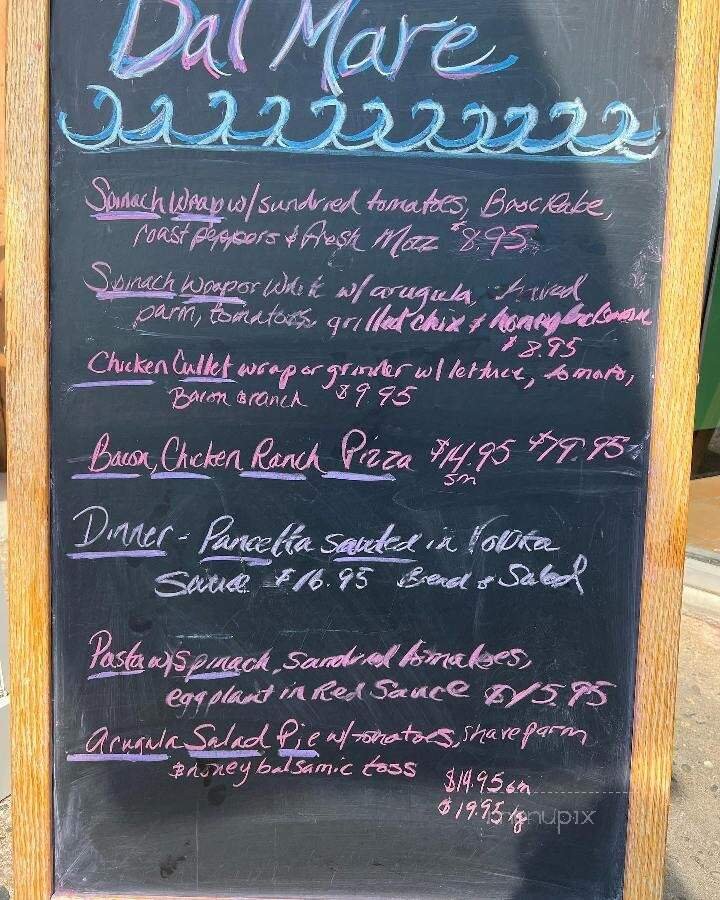 Dal Mare
Spinach Wrap w/ sundried tomatoes, Broc Rabe,
roast peppers & fresh Mozz $8.95
Spinach Wrap or White w/ arugula, shaved
parm, tomatoes grilled chix & honey balsamic
$8.95
Chicken Cutlet wrap or grinder w/ lettuce, tomato,
Bacon & ranch $9.95
Bacon, Chicken Ranch Pizza $14.95 $19.95
sm
Dinner - Pancetta sauted in Vodka
Sauce $16.95 Bread & Salad
Pasta w/ Spinach, sundried tomatoes,
eggplant in Red Sauce $15.95
Arugula Salad Pie w/ tomatoes, shave parm
& honey balsamic toss
$14.95 sm
$19.95 lg
menupix